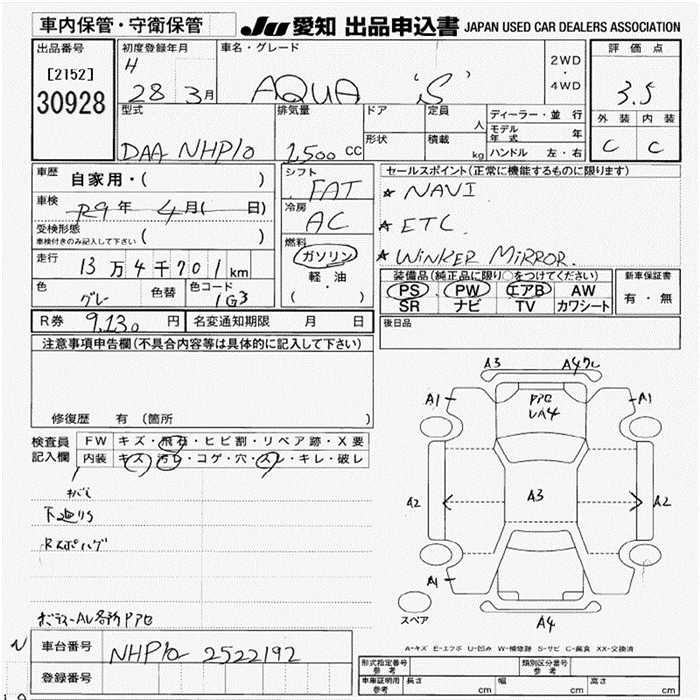 車内保管・守衛保管
JU 愛知 出品申込書 JAPAN USED CAR DEALERS ASSOCIATION
出品番号
[2152]
30928
初度登録年月
H 28 3月
車名・グレード
AQUA 'S'
2WD
・
4WD
評価点
3.5
外装 内装
C C
型式
DAA NHP10
排気量
1,500 CC
ドア
形状
定員
人
積載
kg
ディーラー・並行
モデル年式 年
ハンドル 左・右
車歴 自家用・( )
車検 R9年 4月( 日)
受検形態
車検付きのみ記入して下さい ( )
走行 13万4千701km
色 グレー 色替 色コード 1G3
シフト
FAT
冷房
AC
燃料
ガソリン
軽・油
( )
セールスポイント(正常に機能するものに限ります)
★ NAVI
★ ETC.
★ WINKER MIRROR.
装備品(純正品に限り○をつけてください)
PS PW エアB AW
SR ナビ TV カワシート
新車保証書
有・無
R券 9,130 円 名変通知期限 月 日
後日品
注意事項申告欄(不具合内容等は具体的に記入して下さい)
修復歴 有 (箇所 )
検査員記入欄
FW キズ・飛石・ヒビ割・リペア跡・X要
内装 キズ・汚レ・コゲ・穴・スレ・キレ・破レ
下廻りS
A3 A4
A1 A1
A2 A3 A2
A1
A4
スペア
A-キズ E-エクボ U-凹み W-補修跡 S-サビ C-腐食 XX-交換済
車台番号 NHP10 2522192
登録番号
形式指定番号 参考
類別区分番号 参考
車庫証明用 参考 長さ cm 幅 cm 高さ cm